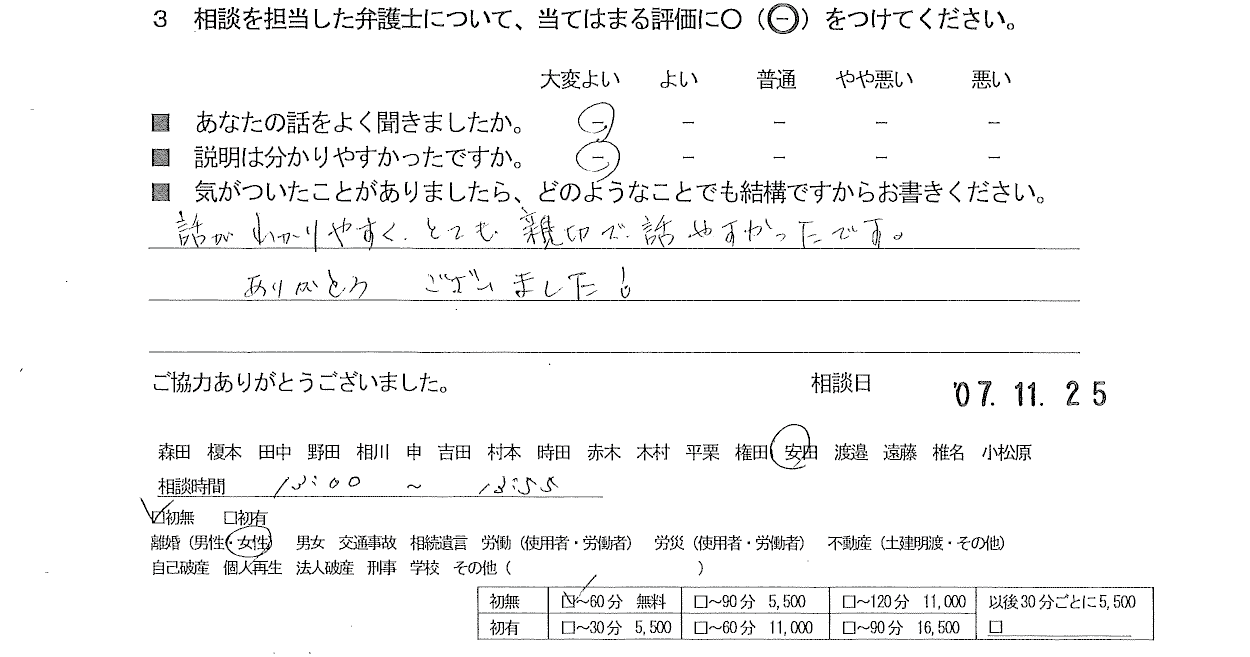 3 相談を担当した弁護士について、当てはまる評価に○(㊀)をつけてください。
大変よい よい 普通 やや悪い 悪い
■ あなたの話をよく聞きましたか。 － － － － －
■ 説明は分かりやすかったですか。 － － － － －
■ 気がついたことがありましたら、どのようなことでも結構ですからお書きください。
話がわかりやすく、とても親切で話やすかったです。
ありがとうございました!
ご協力ありがとうございました。 相談日 '07.11.25
森田 榎本 田中 野田 相川 申 吉田 村本 時田 赤木 木村 平栗 権田 安田 渡邉 遠藤 椎名 小松原
相談時間 13:00 ~ 13:55
☑初無 □初有
離婚(男性・女性) 男女 交通事故 相続遺言 労働(使用者・労働者) 労災(使用者・労働者) 不動産(土建明渡・その他)
自己破産 個人再生 法人破産 刑事 学校 その他( )
初無 ☑~60分 無料 □~90分 5,500 □~120分 11,000 以後30分ごとに5,500
初有 □~30分 5,500 □~60分 11,000 □~90分 16,500 □